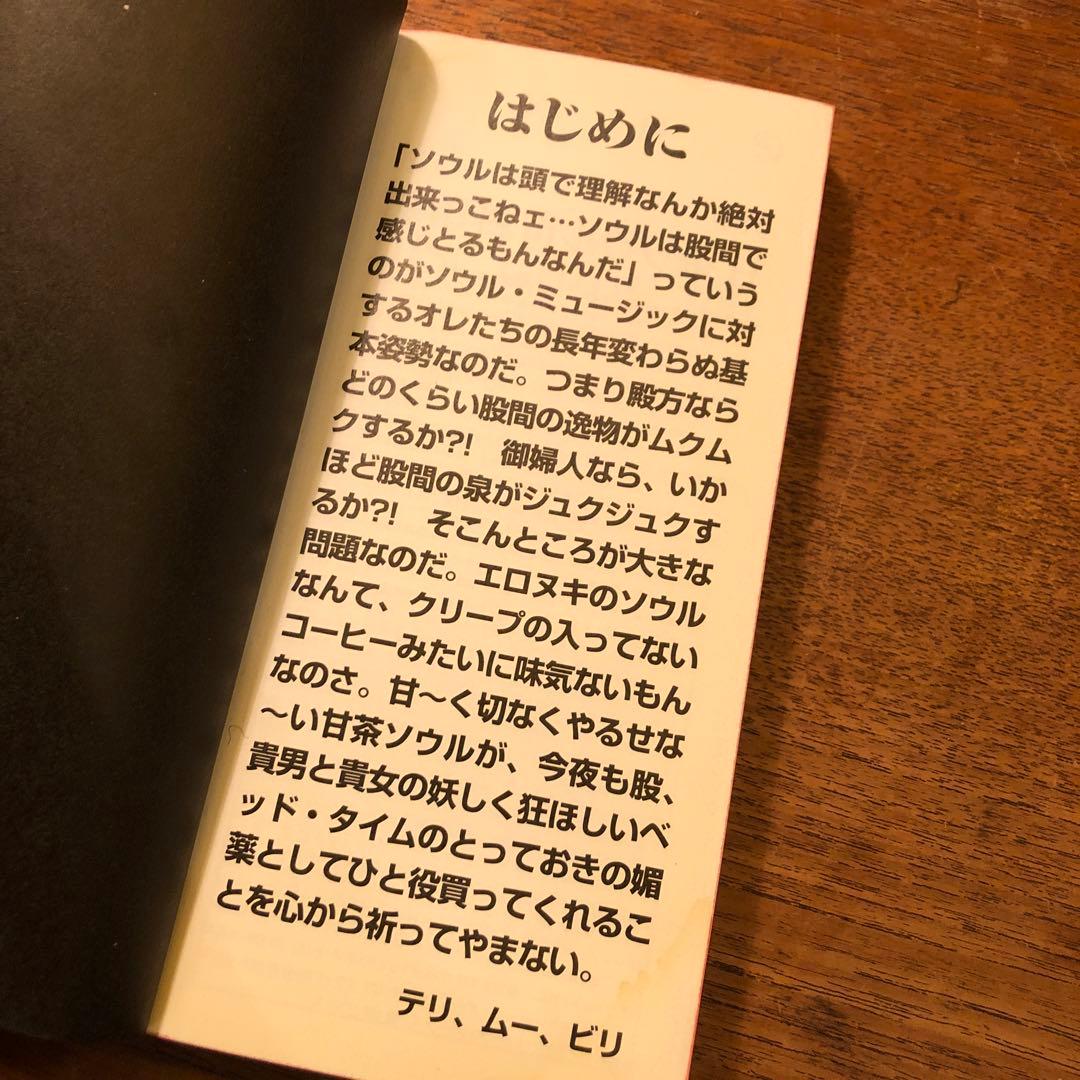 はじめに
「ソウルは頭で理解なんか絶対
出来っこねェ…ソウルは股間で
感じとるもんなんだ」っていう
のがソウル・ミュージックに対
するオレたちの長年変わらぬ基
本姿勢なのだ。つまり殿方なら
どのくらい股間の逸物がムクム
クするか?! 御婦人なら、いか
ほど股間の泉がジュクジュクす
るか?! そこんところが大きな
問題なのだ。エロヌキのソウル
なんて、クリープの入ってない
コーヒーみたいに味気ないもん
なのさ。甘〜く切なくやるせな
〜い甘茶ソウルが、今夜も股、
貴男と貴女の妖しく狂ほしいベ
ッド・タイムのとっておきの媚
薬としてひと役買ってくれるこ
とを心から祈ってやまない。
テリ、ムー、ビリ